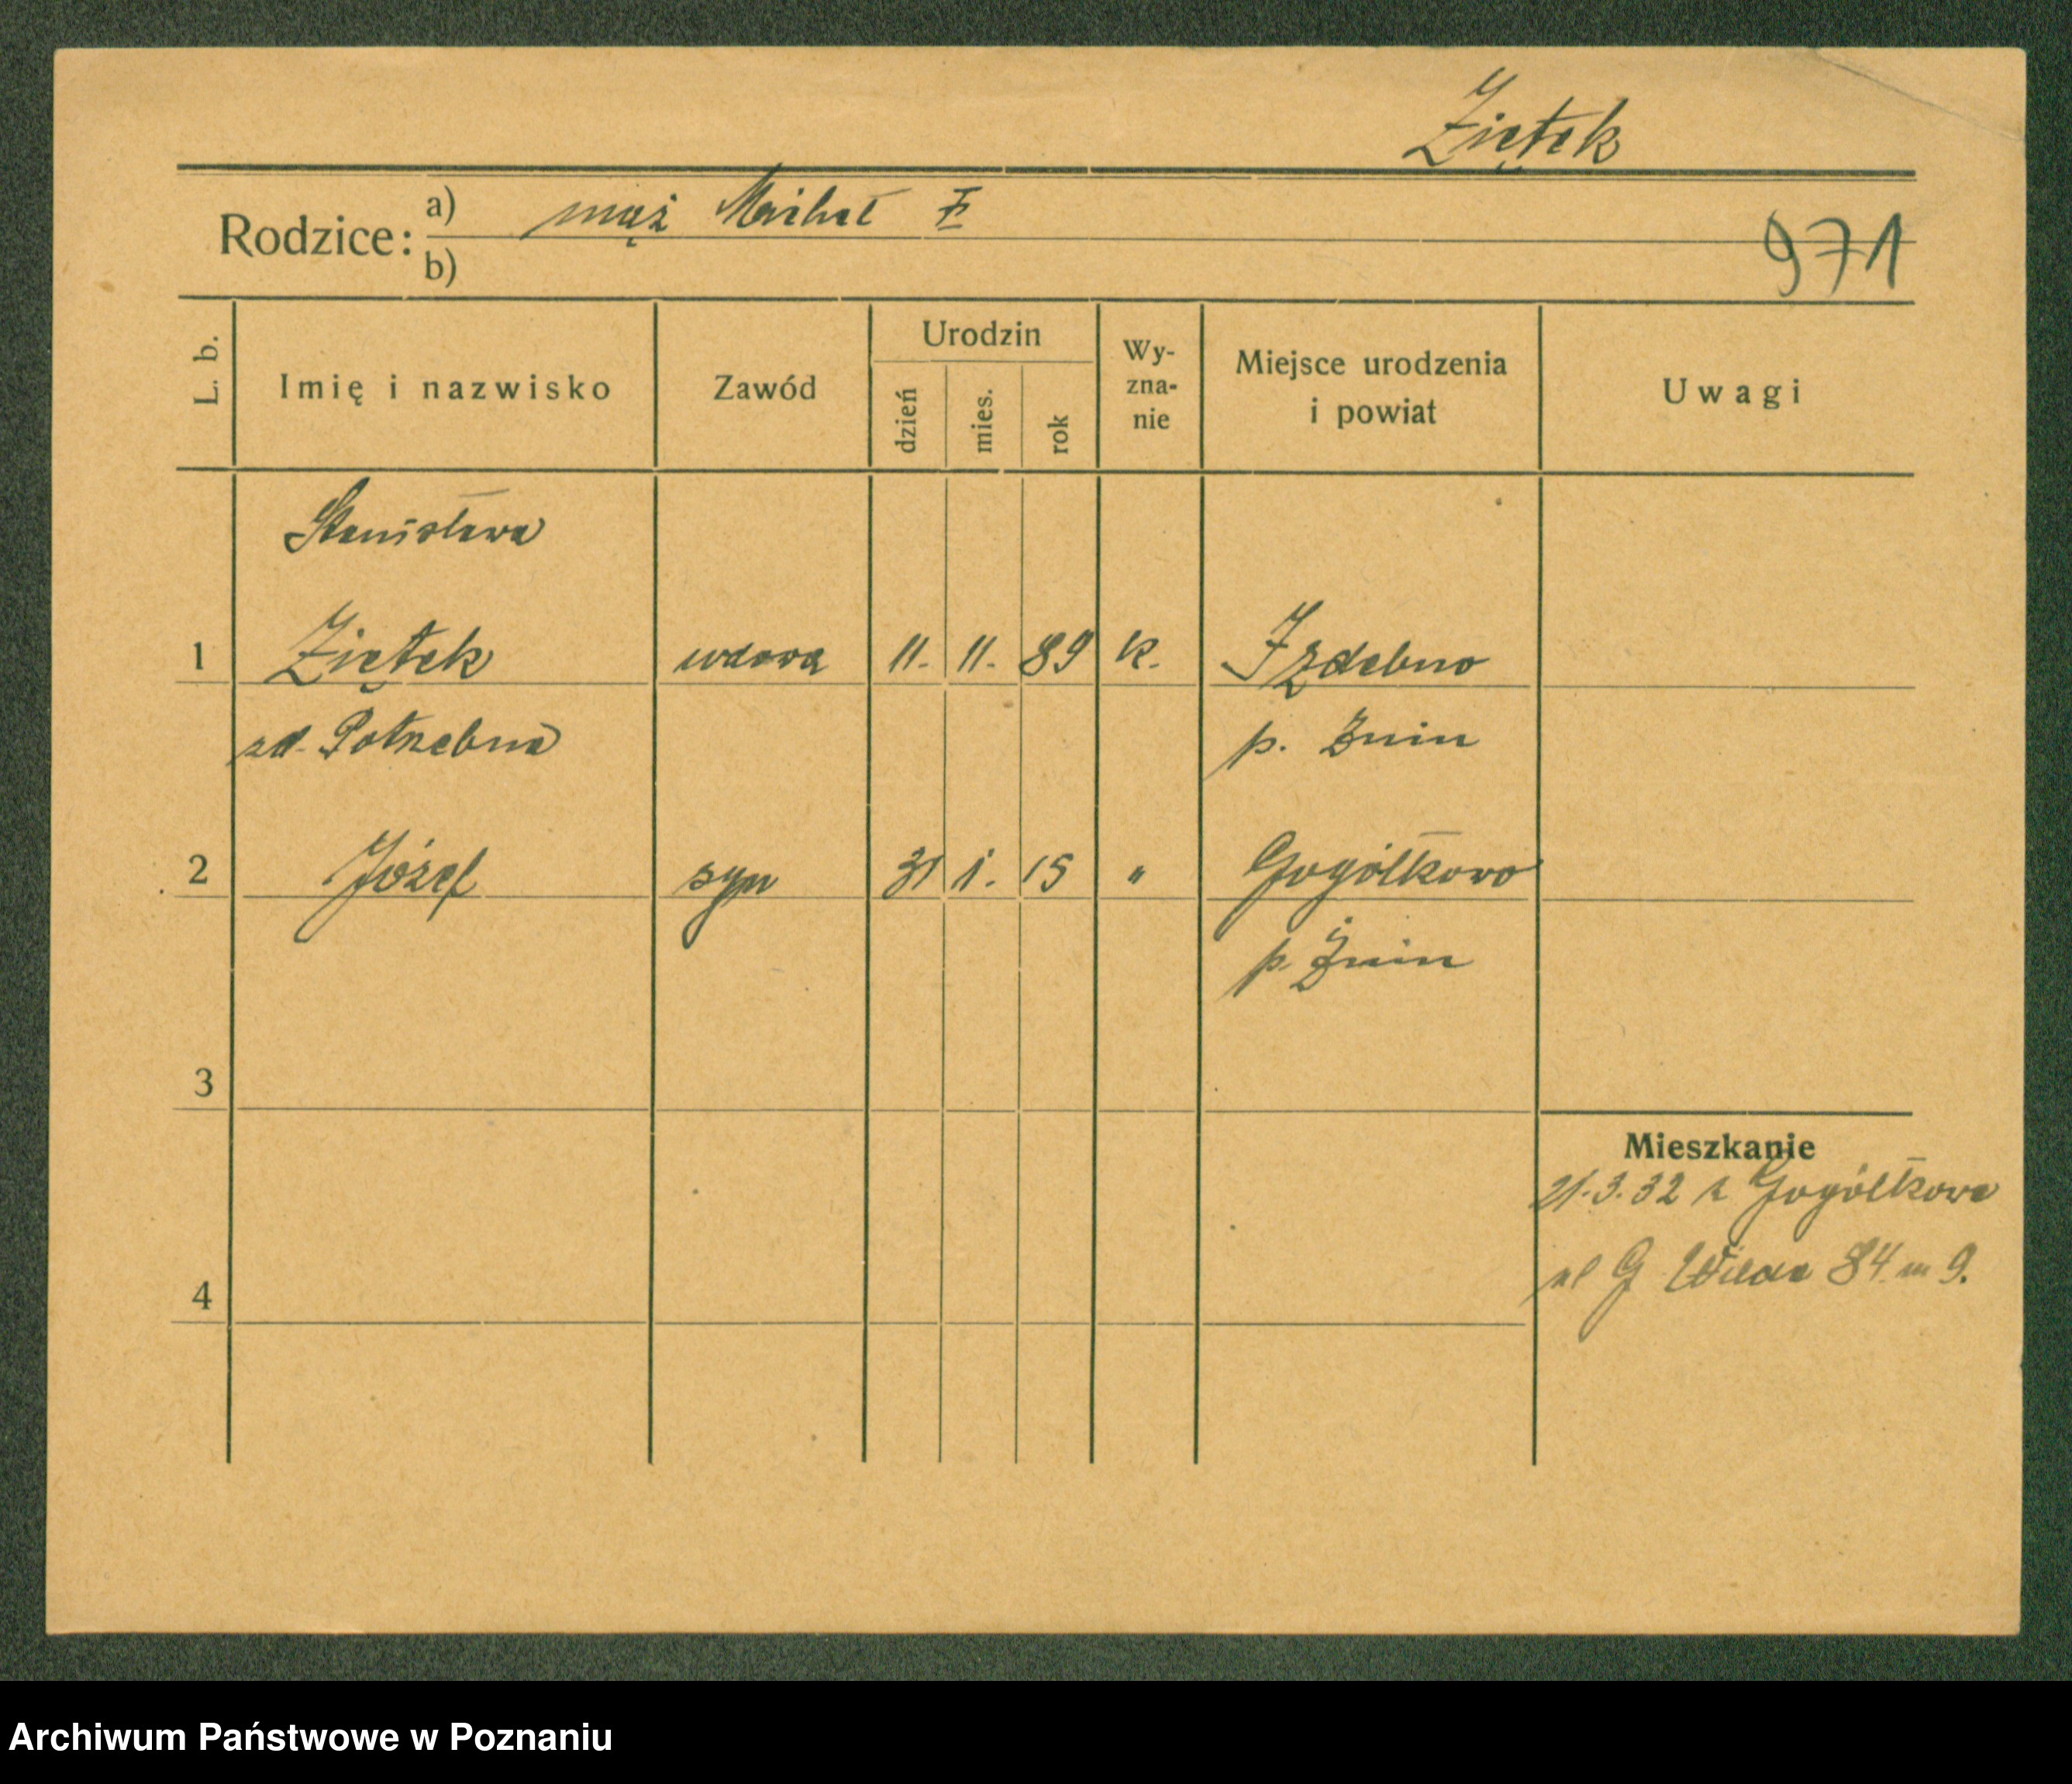 Ziętek
Rodzice: a) mąż Michał
b)
971
L. b. Imię i nazwisko Zawód Urodzin dzień mies. rok Wy-zna-nie Miejsce urodzenia i powiat Uwagi
Stanisława
1 Ziętek wdowa 11. 11. 89 k. Izdebno
zd. Potrzebna p. Żnin
2 Józef syn 31 1. 15 " Gogółkowo
p. Żnin
3
Mieszkanie
21.3.32 z Gogółkowa
4 ul G Wilda 84 m 9.
Archiwum Państwowe w Poznaniu